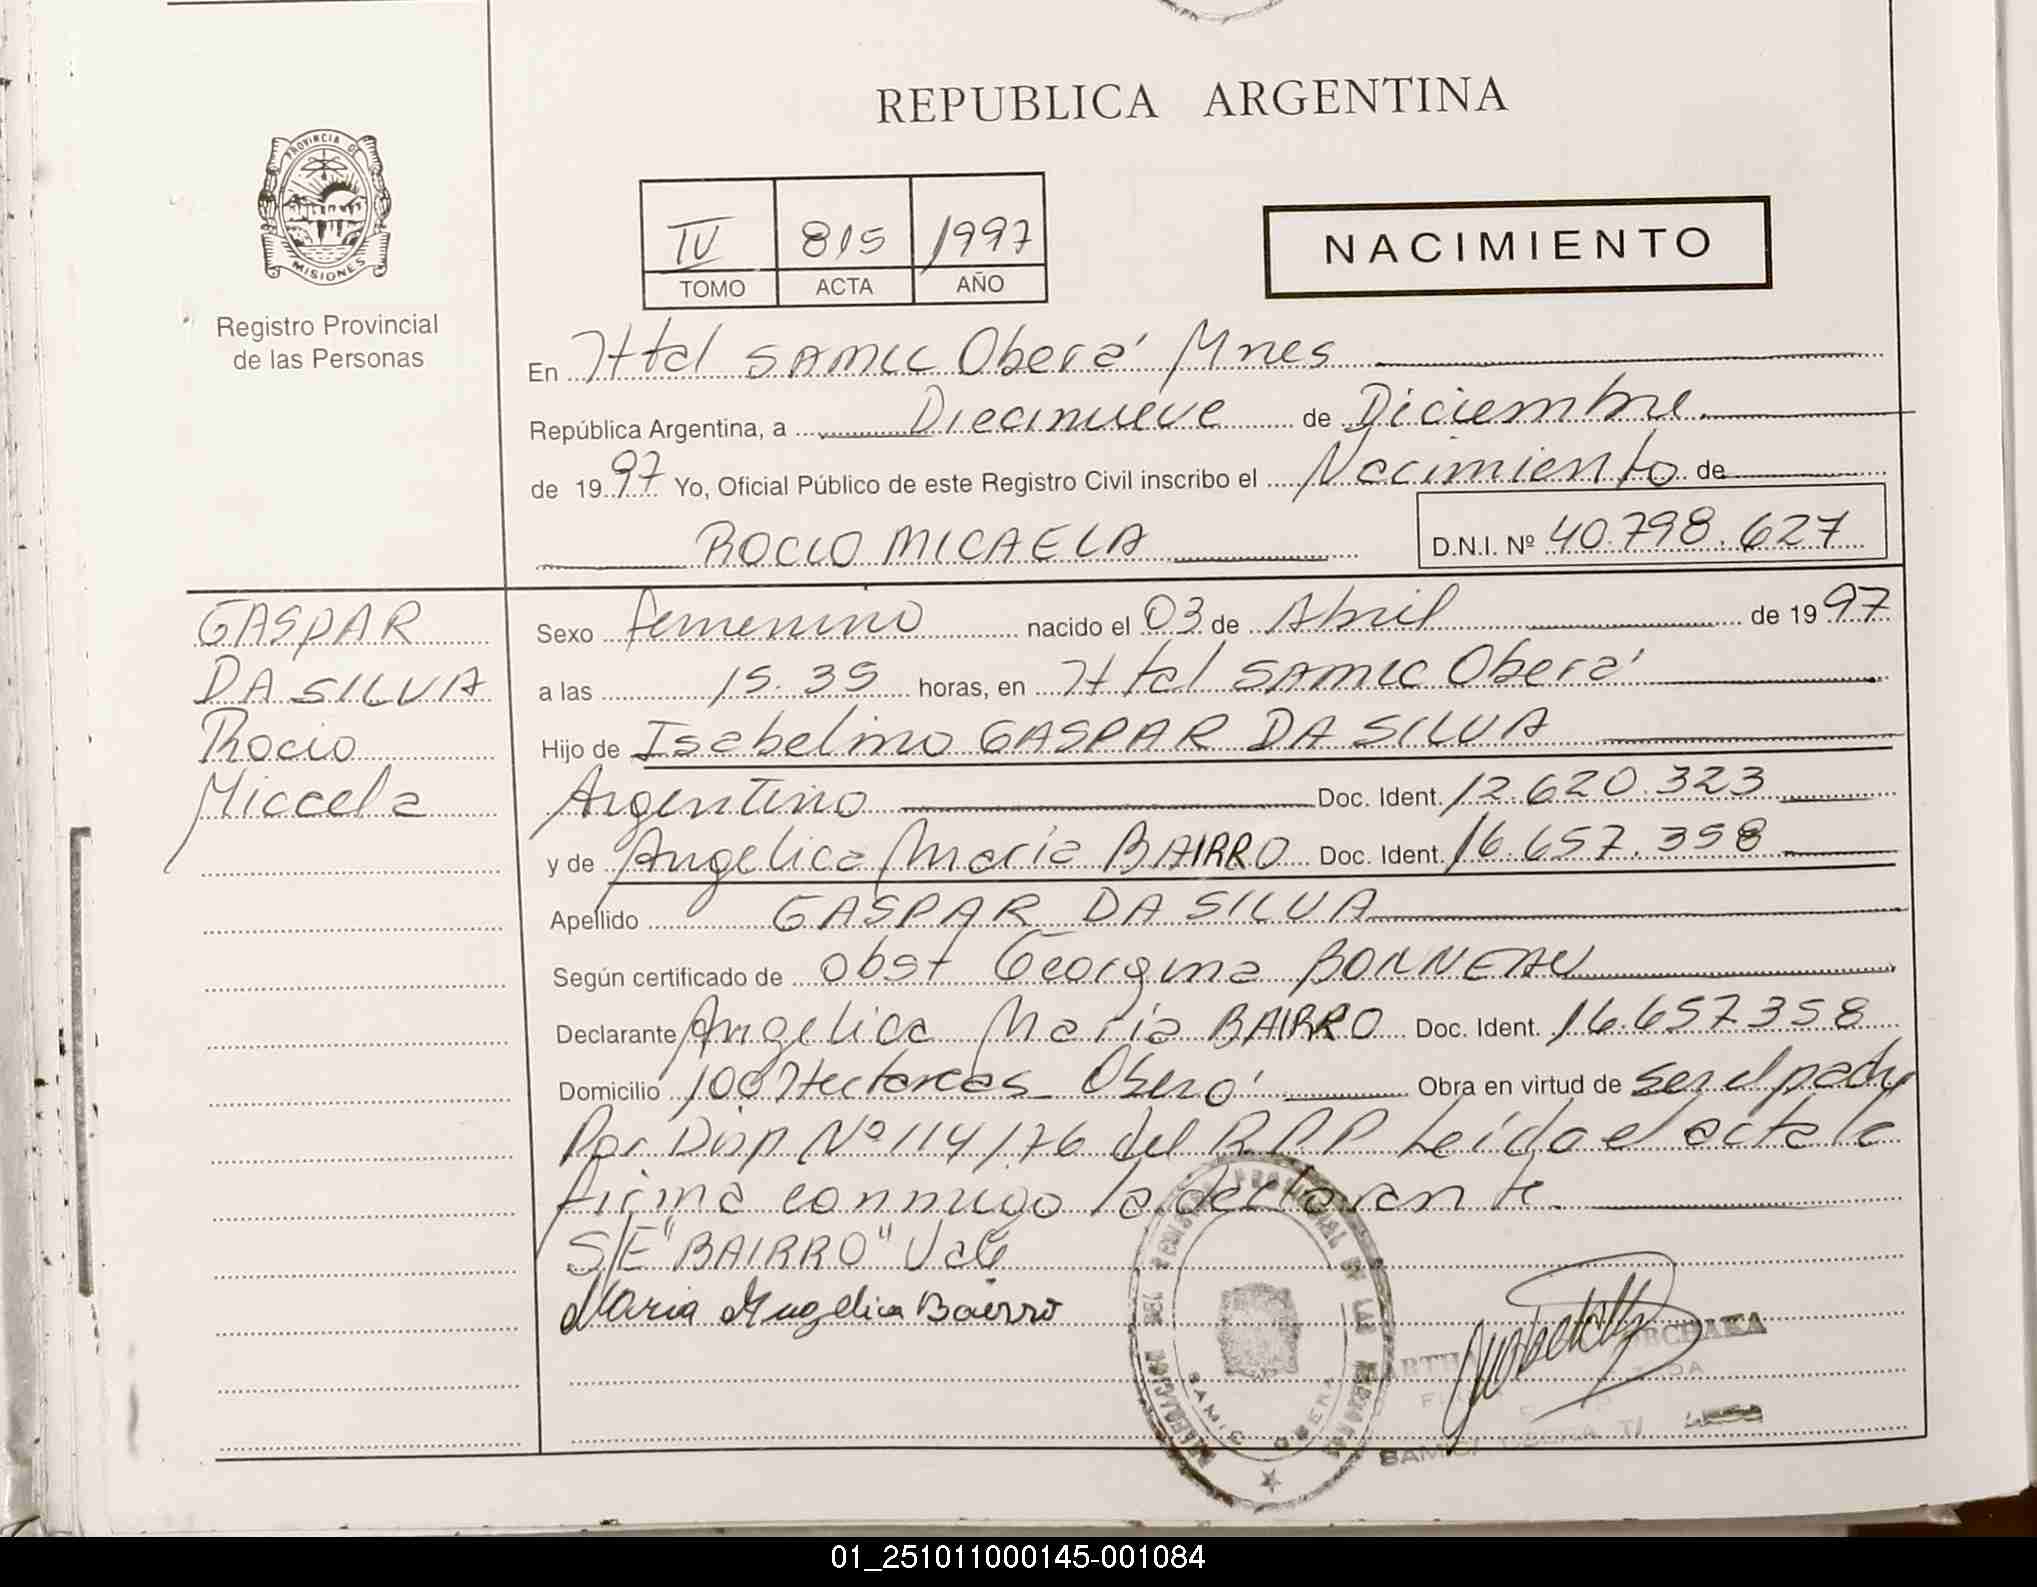 REPUBLICA ARGENTINA
PROVINCIA DE
MISIONES
Registro Provincial
de las Personas
IV 815 1997
TOMO ACTA AÑO
NACIMIENTO
En Htal SAMIC Oberá Mnes
República Argentina, a Diecinueve de Diciembre
de 1997 Yo, Oficial Público de este Registro Civil inscribo el Nacimiento de
ROCIO MICAELA D.N.I. Nº 40.798.627
GASPAR
DA SILVA
Rocio
Micaela
Sexo femenino nacido el 03 de Abril de 1997
a las 15.35 horas, en Htal SAMIC Oberá
Hijo de Isabelino GASPAR DA SILVA
Argentino Doc. Ident. 12.620.323
y de Angelica Maria BAIRRO Doc. Ident. 16.657.358
Apellido GASPAR DA SILVA
Según certificado de obst Georgina BONNEAU
Declarante Angelica Maria BAIRRO Doc. Ident. 16.657358
Domicilio 100 Hectareas Oberá Obra en virtud de ser el padre
Por Disp Nº 114/76 del R.P.P Leida el acta la
firma conmigo la declarante.
S/E "BAIRRO" Vale
Maria Angelica Bairro
SAMIC OBERA
01_251011000145-001084